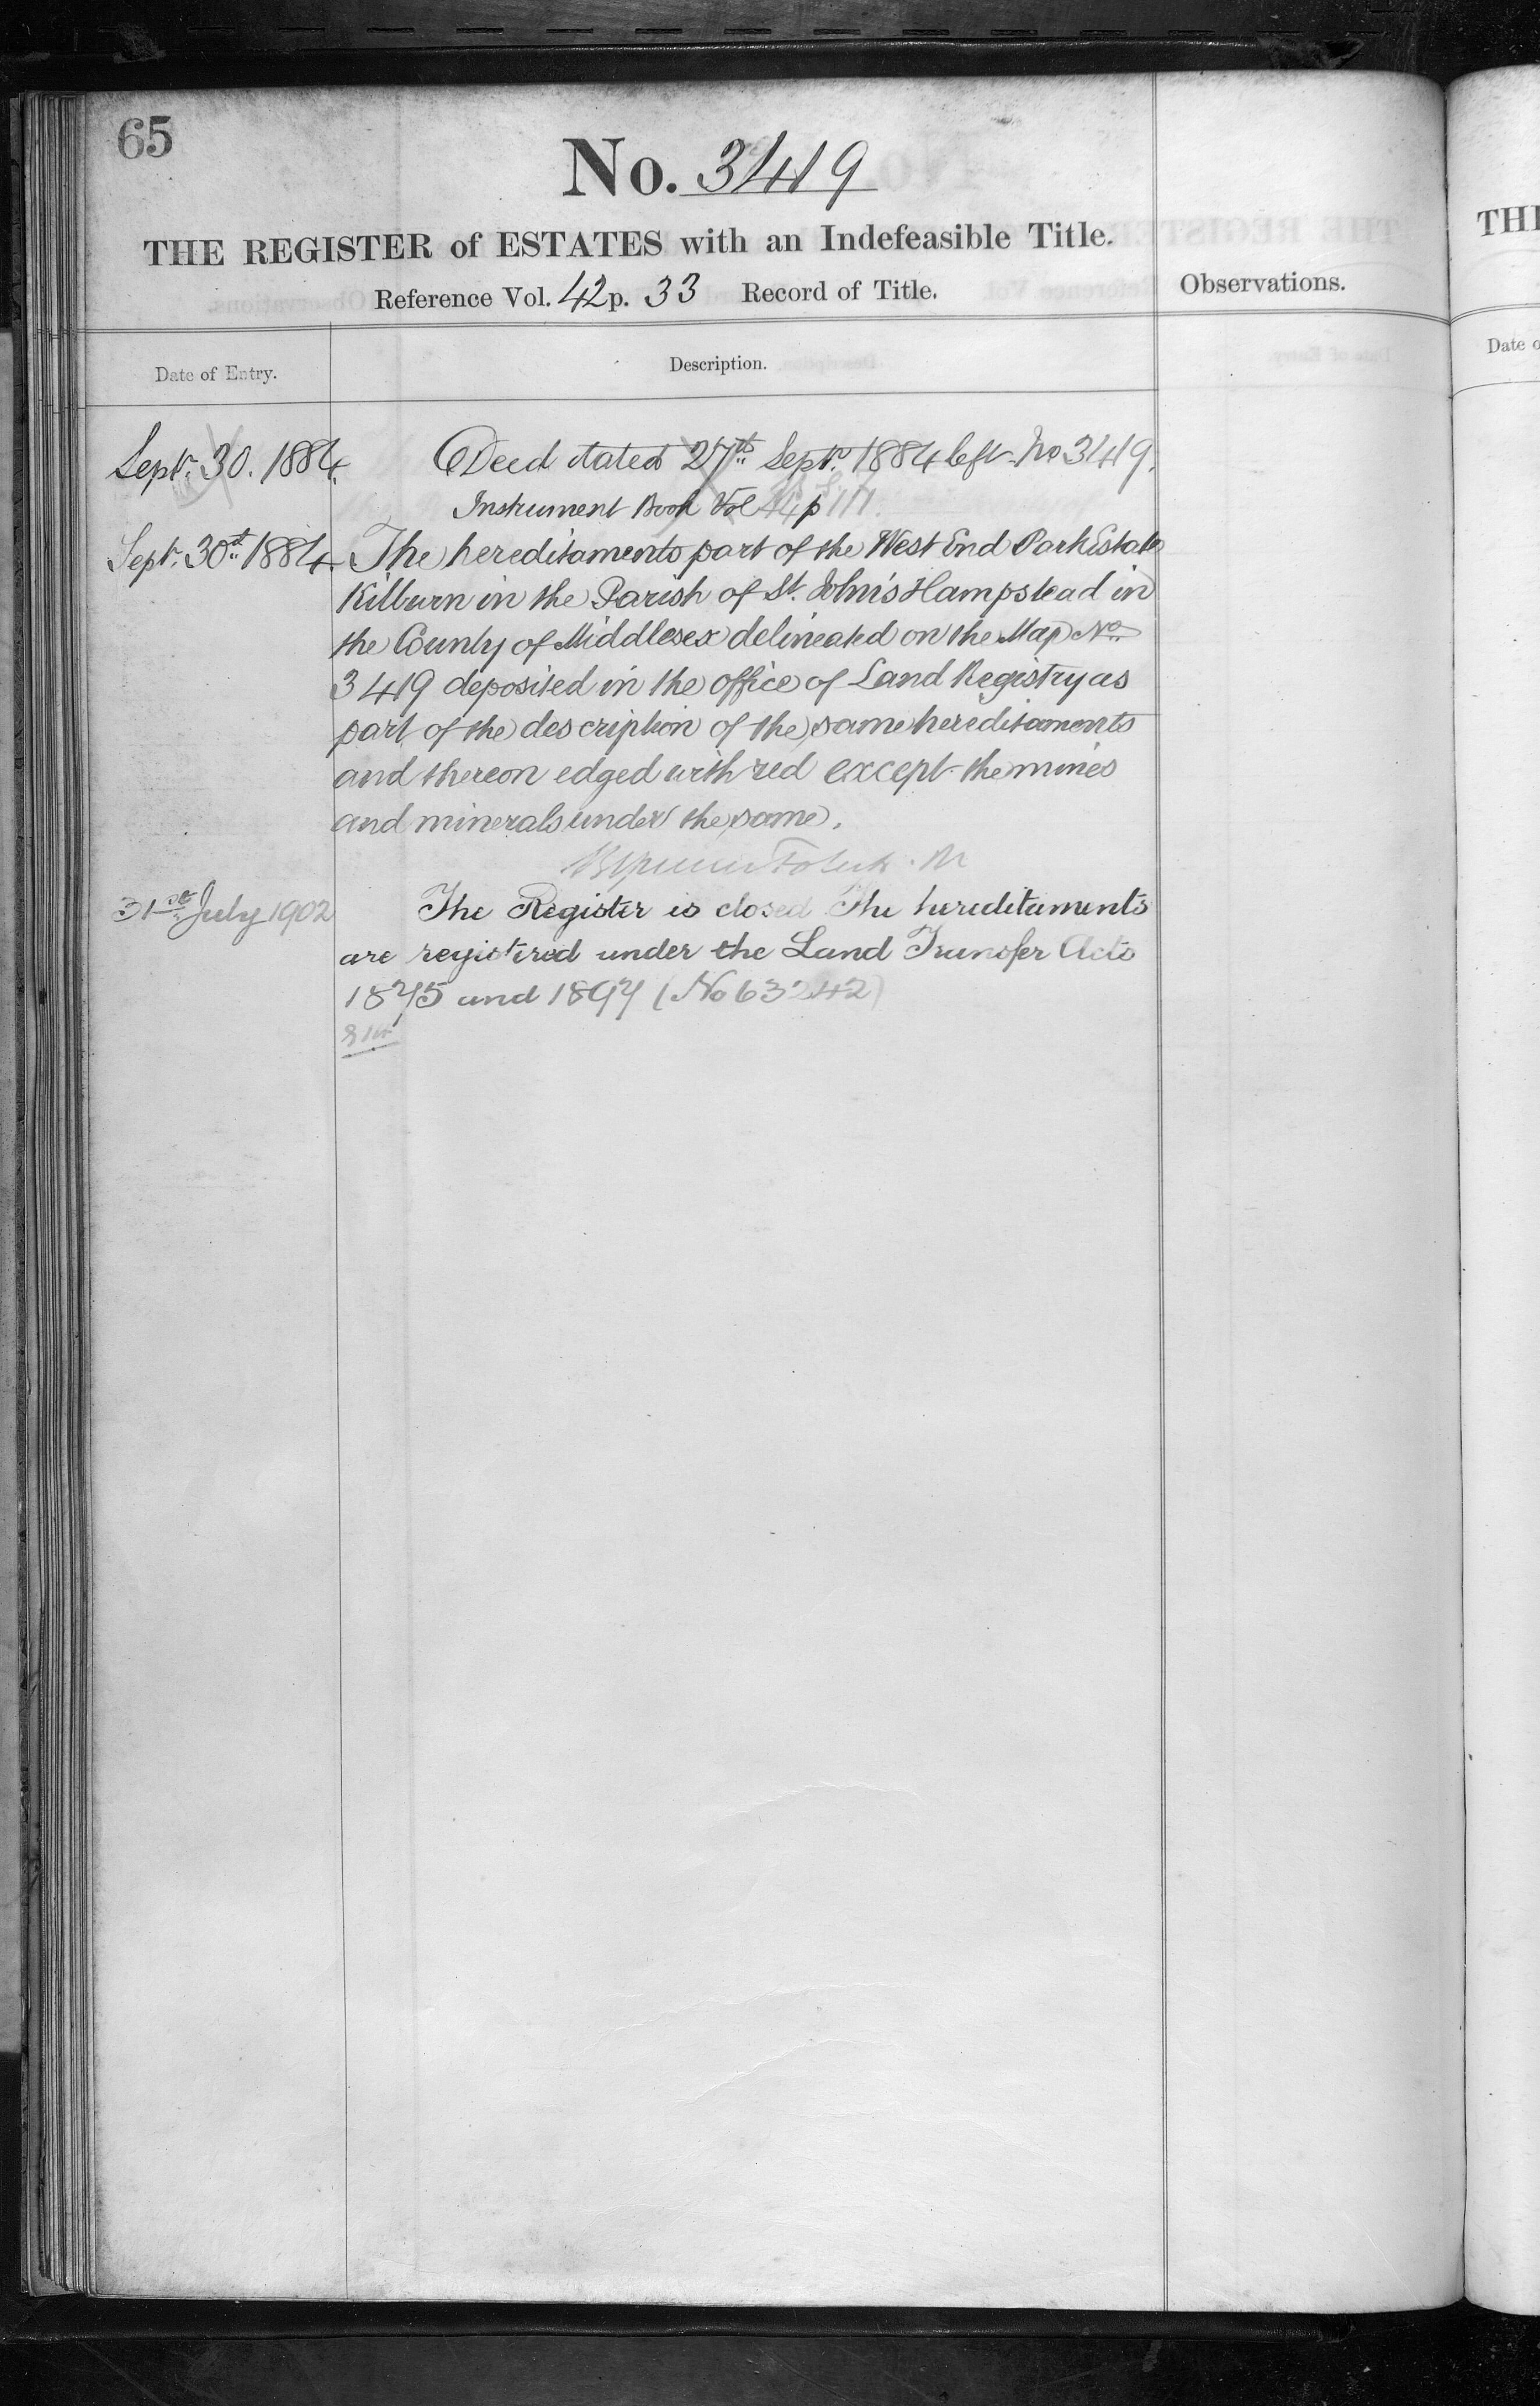 65
No. 3419
THE REGISTER of ESTATES with an Indefeasible Title.
Reference Vol. 42 p. 33 Record of Title.
Observations.
Date of Entry.
Description.
Septr. 30. 1884.
Deed dated 27th Septr. 1884 left No 3419.
Instrument Book Vol p
Septr. 30th 1884.
The hereditaments part of the West End Park Estate
Kilburn in the Parish of St. John's Hampstead in
the County of Middlesex delineated on the Map No.
3419 deposited in the office of Land Registry as
part of the description of the same hereditaments
and thereon edged with red except the mines
and minerals under the same.
31st July 1902
The Register is closed The hereditaments
are registered under the Land Transfer Acts
1875 and 1897 (No 63242)
THE
Date o